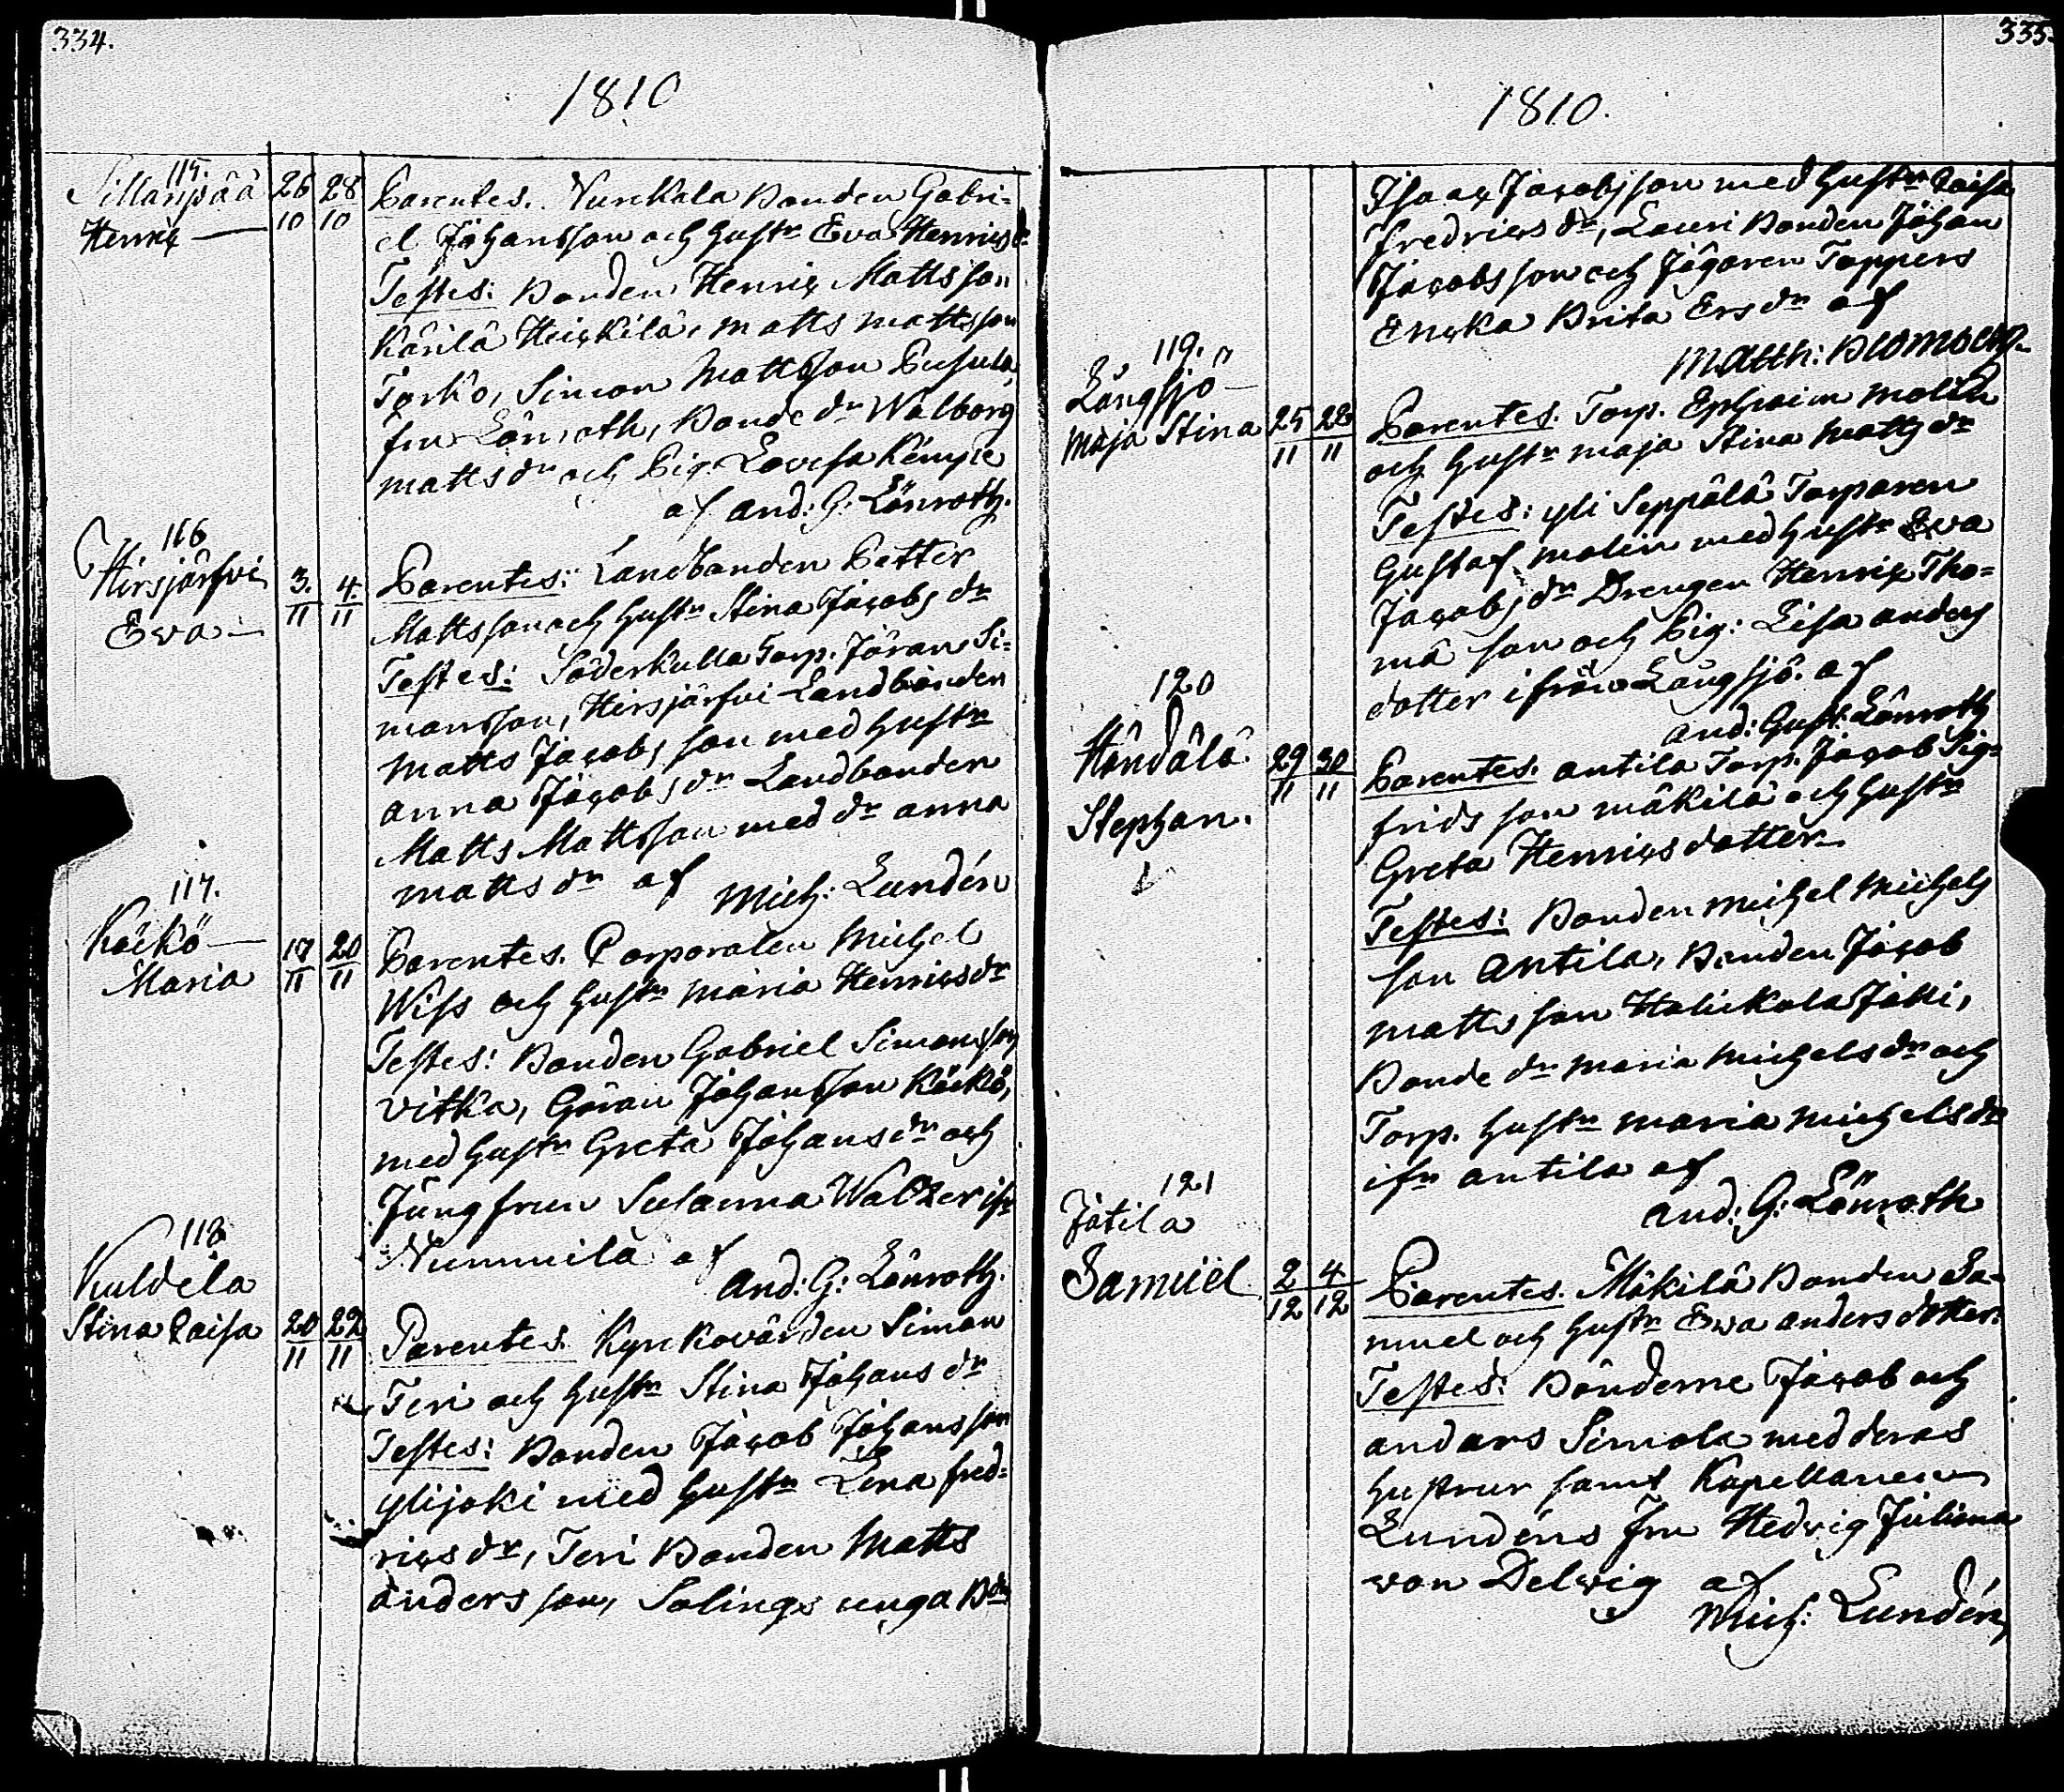 334.
1810
115.
Sillanpää
Henric
26 28
10 10
Parentes. Nurckala Bonden Gabri-
el Johansson och hustr Eva Henricsdr
Testes: Bonden Henric Mattsson
Kärilä Heickilä, Matts Mattsson
Torkko, Simon Mattsson Pusula,
fru Lönroth, Bonde dr Walborg
Mattsdr och Pig. Lovisa Kempe
af And: G: Lönroth.
116
Hirsjärfvi
Ewa
3. 4.
11 11
Parentes: Landbonden Petter
Mattsson och hustr Stina Jacobsdr
Testes: Söderkulla Torp. Jöran Si-
mansson, Hirsjärfvi Landbonden
Matts Jacobsson med hustr
Anna Jacobsdr Landbonden
Matts Mattsson med dr Anna
Mattsdr af
Mich: Lundén
117.
Käckö
Maria
17 20
11 11
Parentes. Corporalen Michel
Wiss och hustr Maria Henricsdr
Testes: Bonden Gabriel Simonsson
Vitka, Göran Johansson Käckö,
med hustr Greta Johansdr och
Jungfrun Susanna Walzer ifr
Nummila af
And: G: Lönroth.
118
Kuldela
Stina Caisa
20 22
11 11
Parentes. Kyrckovärden Simon
Teri och hustr Stina Johansdr
Testes: Bonden Jacob Johansson
Ylijoki med hustr Lena Fred-
ricsdr, Teri Bonden Matts
Andersson, Salings unga Bdn
335.
1810.
Isaac Jacobsson med hustr Caisa
Fredricsdr, Lauri Bonden Johan
Jacobsson och Jägaren Toppers
Encka Brita Ersdr af
Matth: Blomberg.
119.
Långsjö
Maja Stina
25 28
11 11
Parentes. Torp. Ephraim Molin
och hustr Maja Stina Mattsdr
Testes: Yli Seppälä Torparen
Gustaf Molin med hustr Ewa
Jacobsdr Drengen Henric Tho-
mä son och Pig: Lisa Anders
dotter ifrån Långsjö. af
And: Gust: Lönroth
120
Händälä
Stephan.
29 30
11 11
Parentes. Antila Torp. Jacob Sig-
frids son Mäkilä och hustr
Greta Henricsdotter
Testes: Bonden Michel Michels
son Antila, Bonden Jacob
Matts son Halickala Jatti,
Bonde dr Maria Michelsdr och
Torp. hustr Maria Michelsdr
ifr Antila af
And: G: Lönroth
121
Jätila
Samuel
2 4
12 12
Parentes. Mäkilä Bonden Sa-
muel och hustr Ewa Andersdotter.
Testes: Bönderne Jacob och
Anders Simola med deras
hustrur samt Kapellanen
Lundéns Fru Hedvig Juliana
von Delwig af
Mich: Lundén